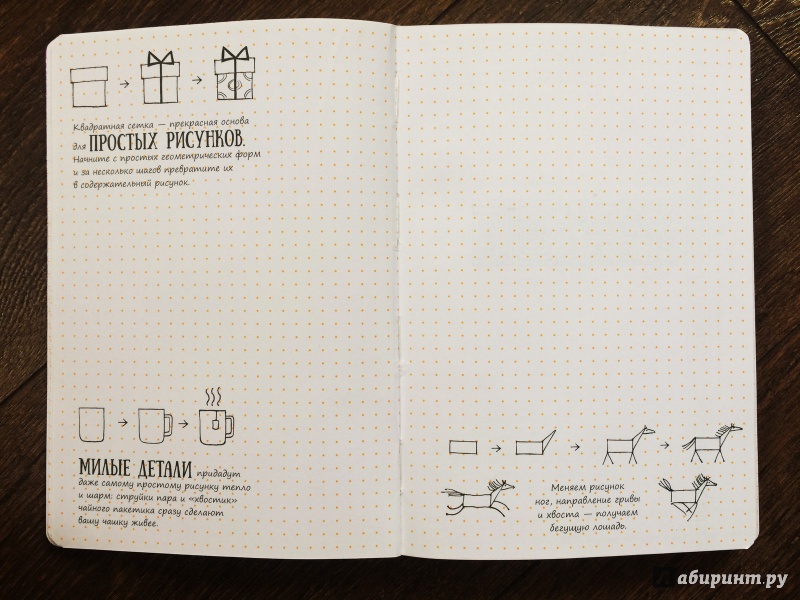 Квадратная сетка — прекрасная основа
для ПРОСТЫХ РИСУНКОВ.
Начните с простых геометрических форм
и за несколько шагов превратите их
в содержательный рисунок.
МИЛЫЕ ДЕТАЛИ придадут
даже самому простому рисунку тепло
и шарм: струйки пара и «хвостик»
чайного пакетика сразу сделают
вашу чашку живее.
Меняем рисунок
ног, направление гривы
и хвоста — получаем
бегущую лошадь.
Лабиринт.ру